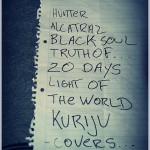 HUNTER
ALCATRAZ
BLACK SOUL
TRUTH OF.
20 DAYS
LIGHT OF
THE WORLD
KURIJU
- COVERS...